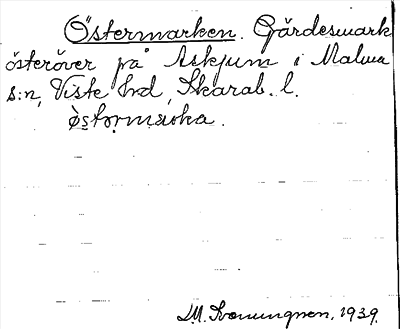 Östermarken. Gärdesmark
österöver på Askjum i Malma
s:n, Viste hd, Skarab. l.
östermarka.
M. 1939.